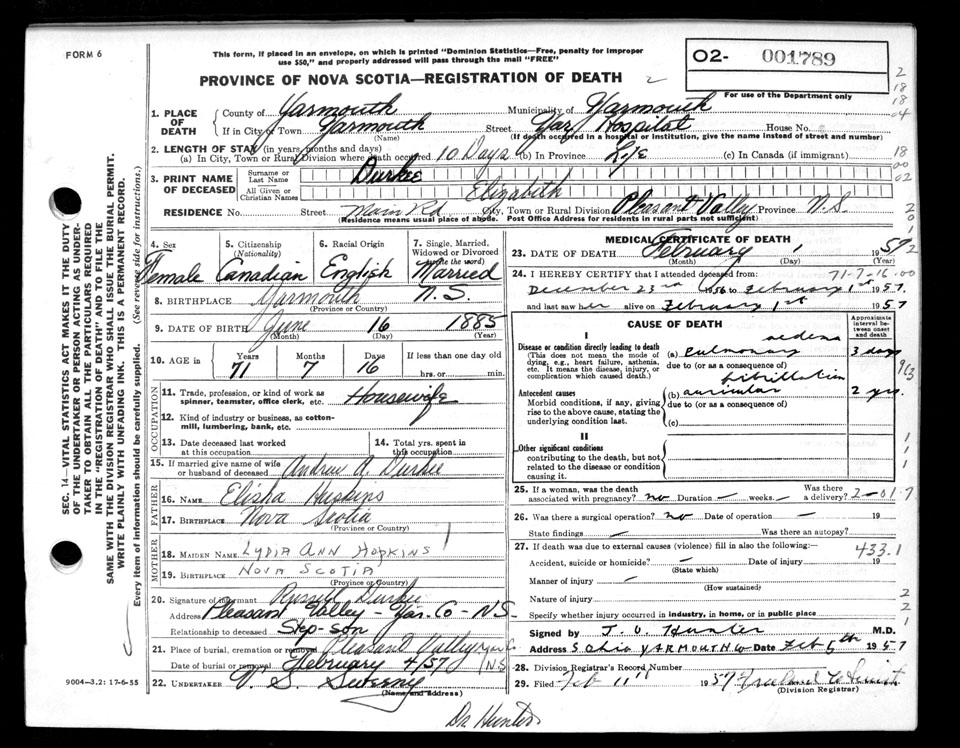 FORM 6
This form, if placed in an envelope, on which is printed "Dominion Statistics—Free, penalty for improper
use $50," and properly addressed will pass through the mail "FREE"
PROVINCE OF NOVA SCOTIA—REGISTRATION OF DEATH
02- 001789
For use of the Department only
1. PLACE OF DEATH
County of Yarmouth Municipality of Yarmouth
If in City or Town Yarmouth Street Yar. Hospital House No.
(Name) (If death occurred in a hospital or institution, give the name instead of street and number)
2. LENGTH OF STAY (in years, months and days)
(a) In City, Town or Rural Division where death occurred 10 Days (b) In Province Life (c) In Canada (if immigrant)
3. PRINT NAME OF DECEASED
Surname or Last Name Durkee
All Given or Christian Names Elizabeth
RESIDENCE No. Street Main Rd City, Town or Rural Division Pleasant Valley Province N.S.
(Residence means usual place of abode. Post Office Address for residents in rural parts not sufficient)
4. Sex Female
5. Citizenship (Nationality) Canadian
6. Racial Origin English
7. Single, Married, Widowed or Divorced (write the word) Married
8. BIRTHPLACE Yarmouth N.S.
(Province or Country)
9. DATE OF BIRTH June 16 1885
(Month) (Day) (Year)
10. AGE in Years Months Days If less than one day old
71 7 16 hrs. or min.
OCCUPATION
11. Trade, profession, or kind of work as spinner, teamster, office clerk, etc. Housewife
12. Kind of industry or business, as cotton-mill, lumbering, bank, etc.
13. Date deceased last worked at this occupation
14. Total yrs. spent in this occupation
15. If married give name of wife or husband of deceased Andrew A Durkee
FATHER
16. NAME Elisha Huskins
17. BIRTHPLACE Nova Scotia
(Province or Country)
MOTHER
18. MAIDEN NAME LYDIA ANN HOPKINS
19. BIRTHPLACE NOVA SCOTIA
(Province or Country)
20. Signature of informant Russell Durkee
Address Pleasant Valley - Yar. Co - N.S.
Relationship to deceased Step-son
21. Place of burial, cremation or removal Pleasant Valley Yar Co
Date of burial or removal February 4/57 N.S.
22. UNDERTAKER V. S. Sweeny
(Name and Address)
MEDICAL CERTIFICATE OF DEATH
23. DATE OF DEATH February 1 1957
(Month) (Day)
24. I HEREBY CERTIFY that I attended deceased from: 71-7-16.00
December 23rd 1956 to February 1st 1957
and last saw her alive on February 1st 1957
CAUSE OF DEATH
Approximate interval between onset and death
I
Disease or condition directly leading to death
(This does not mean the mode of dying, e.g., heart failure, asthenia, etc. It means the disease, injury, or complication which caused death.)
(a) Pulmonary oedema 3 days
due to (or as a consequence of)
Antecedent causes
Morbid conditions, if any, giving rise to the above cause, stating the underlying condition last.
(b) auricular fibrillation 2 yrs.
due to (or as a consequence of)
(c)
II
Other significant conditions
contributing to the death, but not related to the disease or condition causing it.
25. If a woman, was the death associated with pregnancy? no Duration — weeks. Was there a delivery? 2-01.7
26. Was there a surgical operation? no Date of operation — 19
State findings — Was there an autopsy?
27. If death was due to external causes (violence) fill in also the following:— 433.1
Accident, suicide or homicide? — Date of injury 19
(State which)
Manner of injury —
(How sustained)
Nature of injury
Specify whether injury occurred in industry, in home, or in public place
Signed by J. O. Hunter M.D.
Address YARMOUTH Date Feb 5th 1957
28. Division Registrar's Record Number
29. Filed Feb 11th 1957
(Division Registrar)
Dr. Hunter
9004—3.2: 17-6-55
SEC. 14—VITAL STATISTICS ACT MAKES IT THE DUTY
OF THE UNDERTAKER OR PERSON ACTING AS UNDER-
TAKER TO OBTAIN ALL THE PARTICULARS REQUIRED
IN THE "REGISTRATION OF DEATH" AND TO FILE THE
SAME WITH THE DIVISION REGISTRAR WHO SHALL ISSUE THE BURIAL PERMIT.
WRITE PLAINLY WITH UNFADING INK. THIS IS A PERMANENT RECORD.
Every item of information should be carefully supplied. (See reverse side for instructions.)